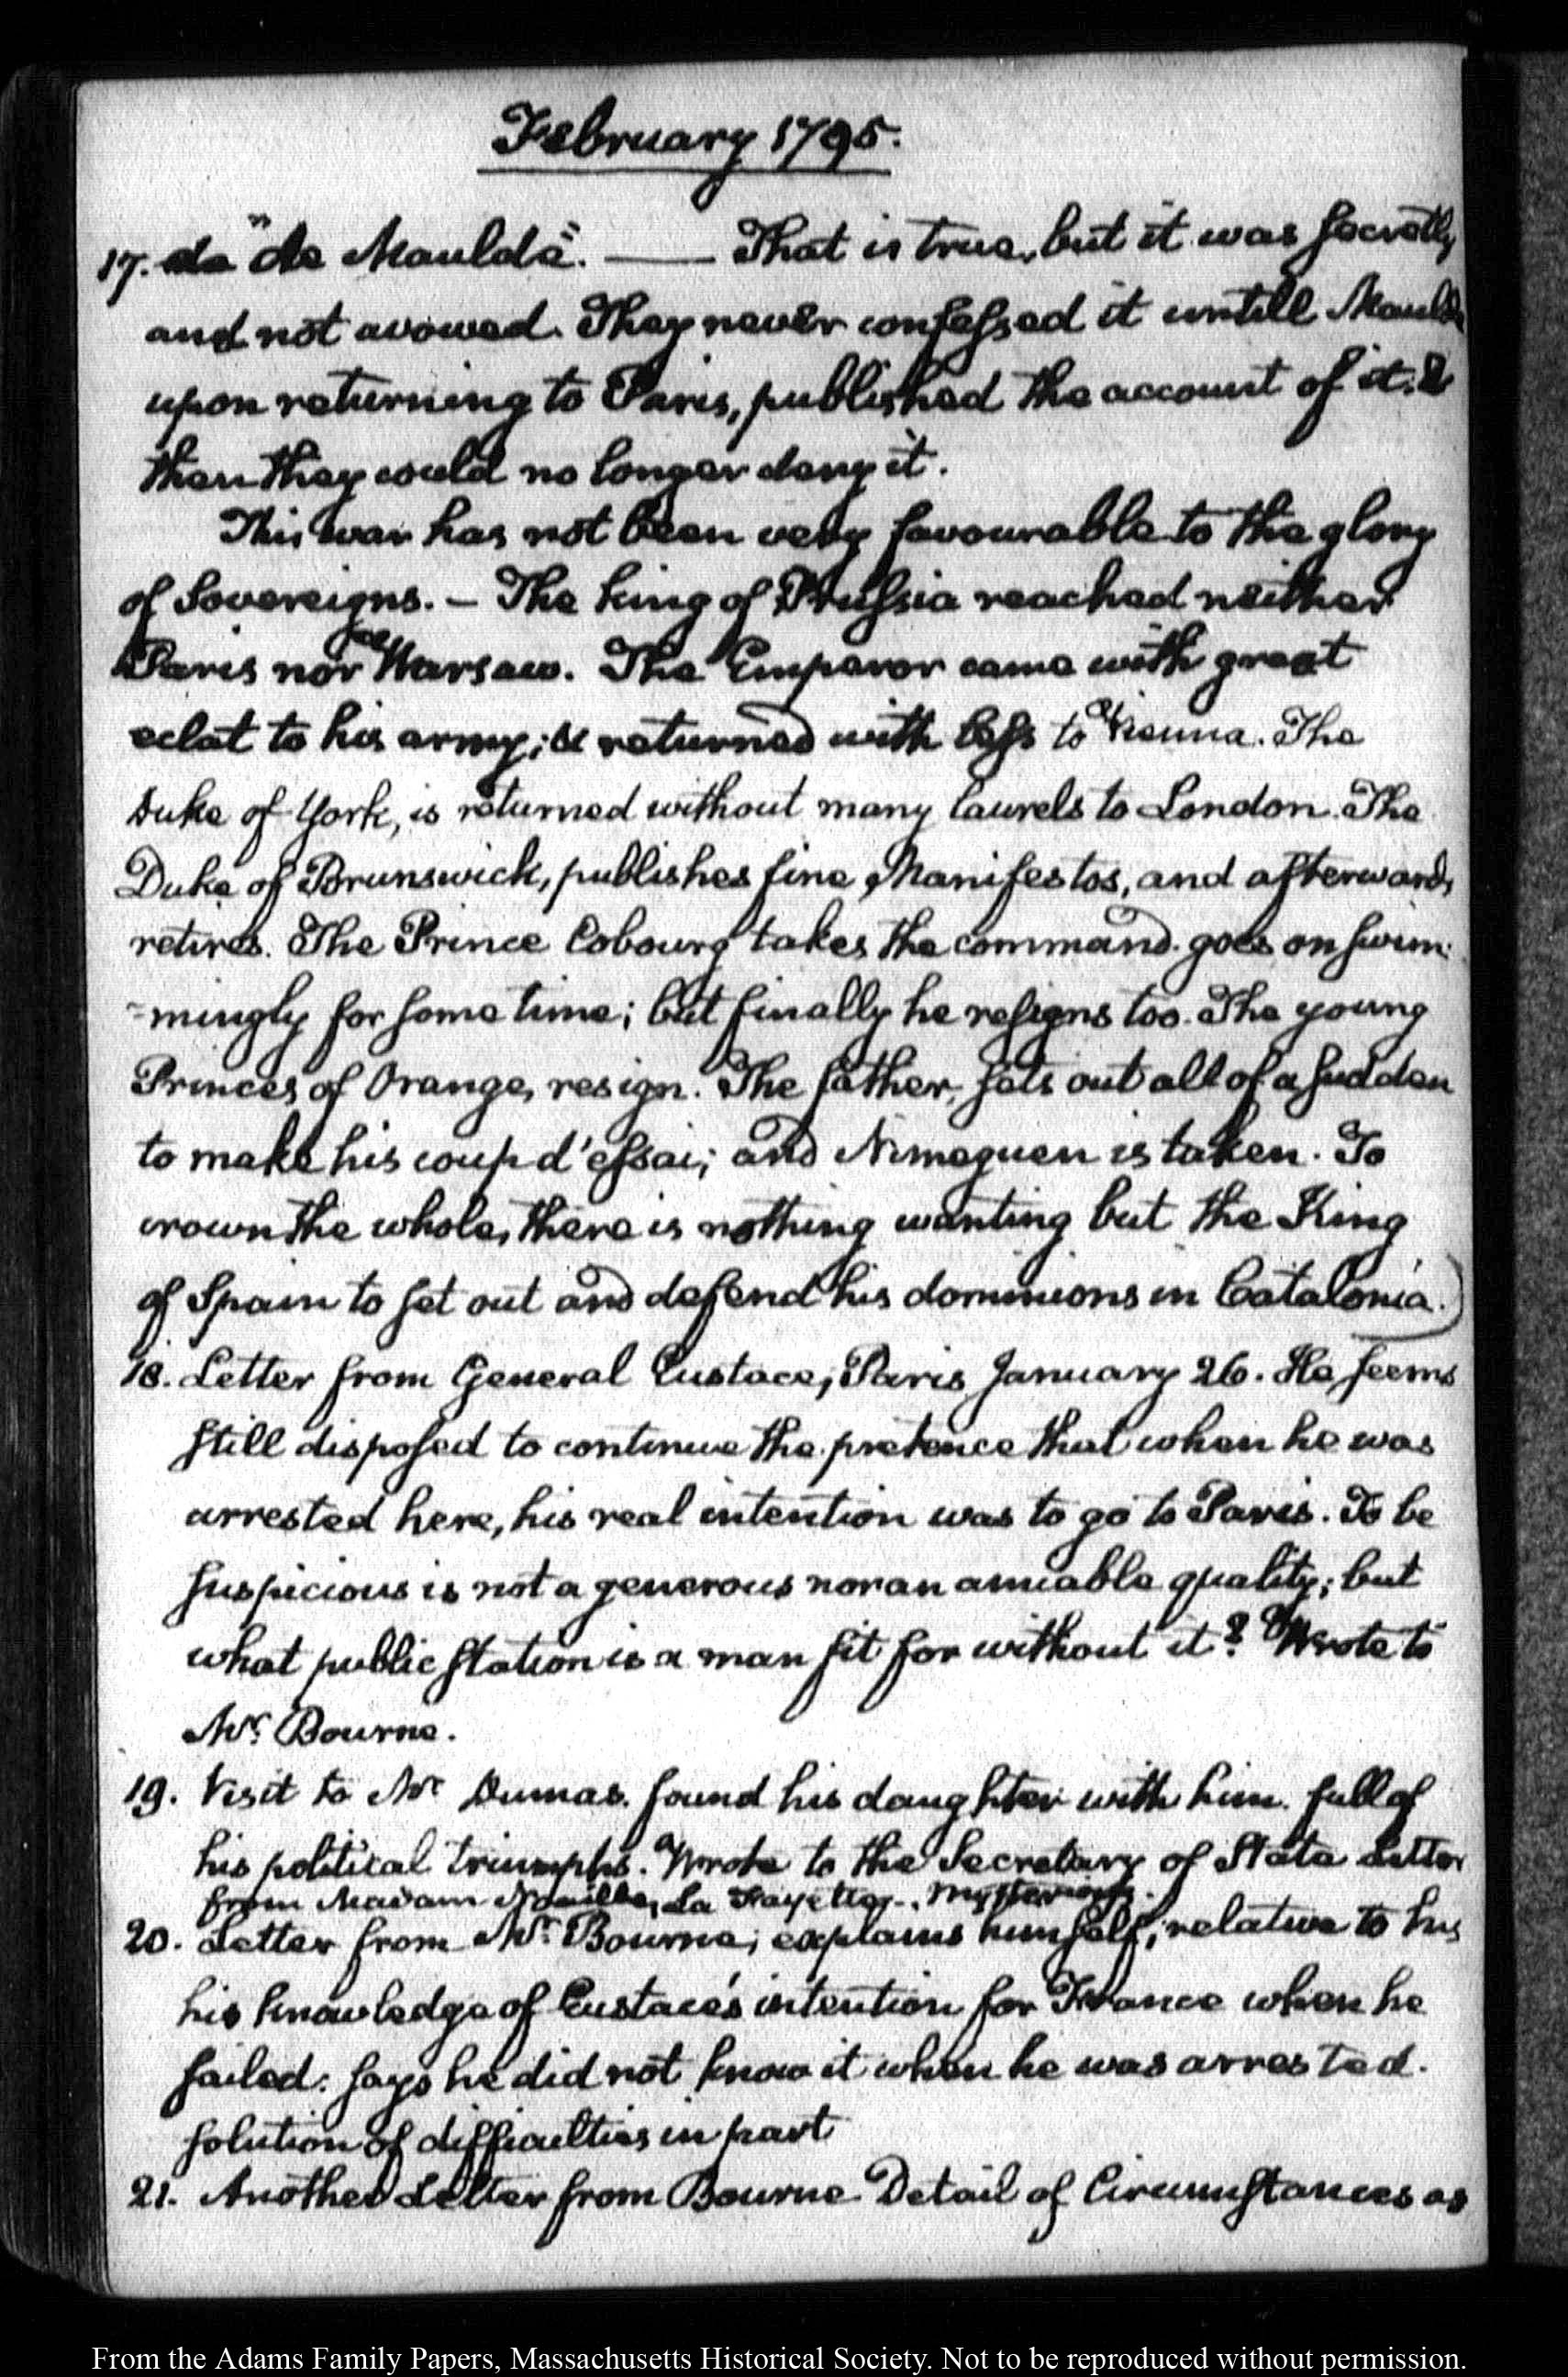 February 1795.
17. de "de Maulde". —— That is true, but it was secretly
and not avowed. They never confessed it untill Maulde
upon returning to Paris, published the account of it. &
then they could no longer deny it.
This war has not been very favourable to the glory
of Sovereigns. — The King of Prussia reached neither
Paris nor Warsaw. The Emperor came with great
eclat to his army; & returned with less to Vienna. The
Duke of York, is returned without many laurels to London. The
Duke of Brunswick, publishes fine Manifestos, and afterwards
retires. The Prince Cobourg takes the command. goes on swim-
-mingly for some time; but finally he resigns too. The young
Princes of Orange, resign. The father, sets out all of a sudden
to make his coup d'essai; and Nimeguen is taken. To
crown the whole, there is nothing wanting but the King
of Spain to set out and defend his dominions in Catalonia.)
18. Letter from General Eustace, Paris January 26. He seems
still disposed to continue the pretence that when he was
arrested here, his real intention was to go to Paris. To be
suspicious is not a generous nor an amiable quality; but
what public station is a man fit for without it? Wrote to
Mr. Bourne.
19. Visit to Mr Dumas. found his daughter with him. full of
his political triumphs. Wrote to the Secretary of State Letter
from Madam Noailles, La Fayette. Mysterious.
20. Letter from Mr. Bourne; explains himself, relative to his
his knowledge of Eustace's intention for France when he
sailed: says he did not know it when he was arrested.
solution of difficulties in part
21. Another Letter from Bourne Detail of Circumstances as
From the Adams Family Papers, Massachusetts Historical Society. Not to be reproduced without permission.